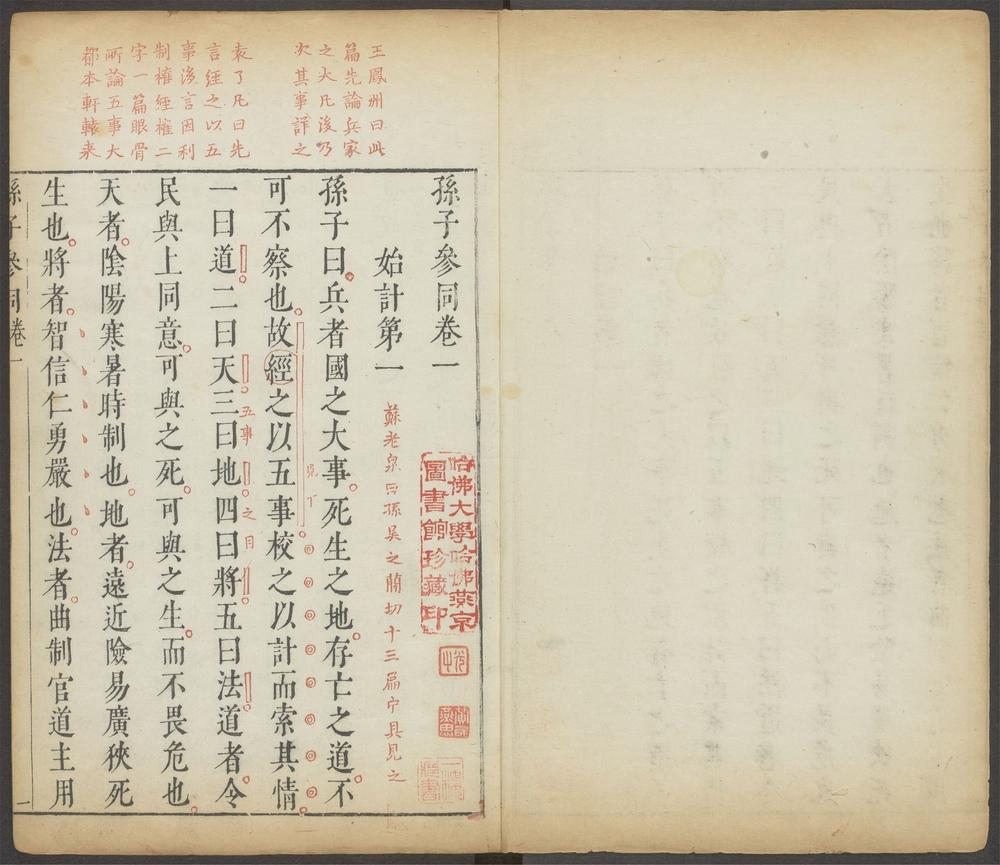 王鳳洲曰此
篇先論兵家
之大凡後乃
次其事詳之
袁了凡曰先
言經之以五
事後言因利
制權經權二
字一篇眼骨
所論五事大
都本軒轅來
孫子參同卷一
始計第一
蘇老泉曰孫吳之簡切十三篇中具見之
孫子曰兵者國之大事死生之地存亡之道不
見下
可不察也故經之以五事校之以計而索其情
五事之目
一曰道二曰天三曰地四曰將五曰法道者令
民與上同意可與之死可與之生而不畏危也
天者陰陽寒暑時制也地者遠近險易廣狹死
生也將者智信仁勇嚴也法者曲制官道主用
孫子參同卷一
一
哈佛大學哈佛燕京
圖書館珍藏印